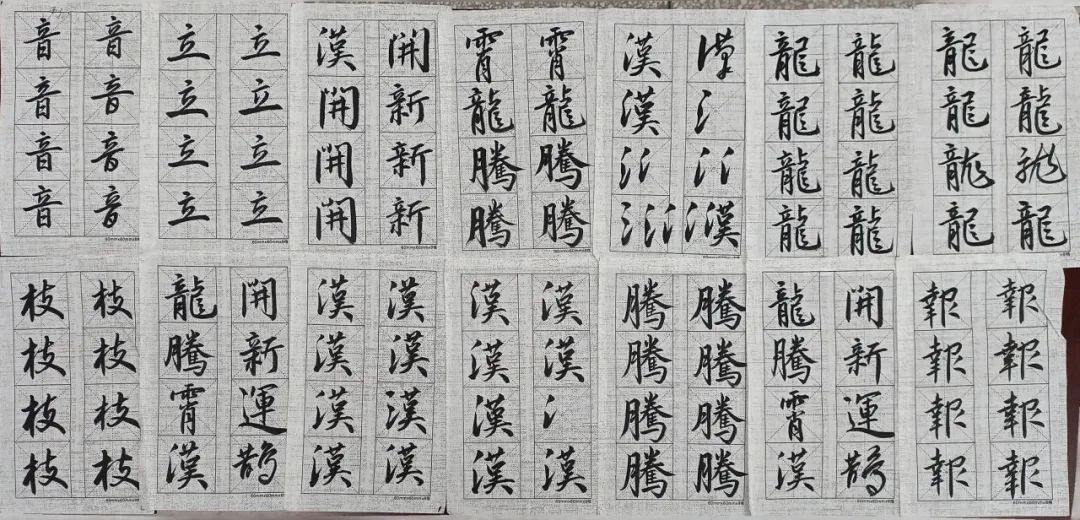 音音音音
音音音音
立立立立
立立立立
漢開開開
開新新新
霄龍騰騰
霄龍騰騰
漢漢
漢
龍龍龍龍
龍龍龍龍
龍龍龍龍
龍龍龍龍
枝枝枝枝
枝枝枝枝
龍騰霄漢
開新運鵲
漢漢漢漢
漢漢漢漢
漢漢漢漢
漢漢氵漢
騰騰騰騰
騰騰騰騰
龍騰霄漢
開新運鵲
報報報報
報報報報